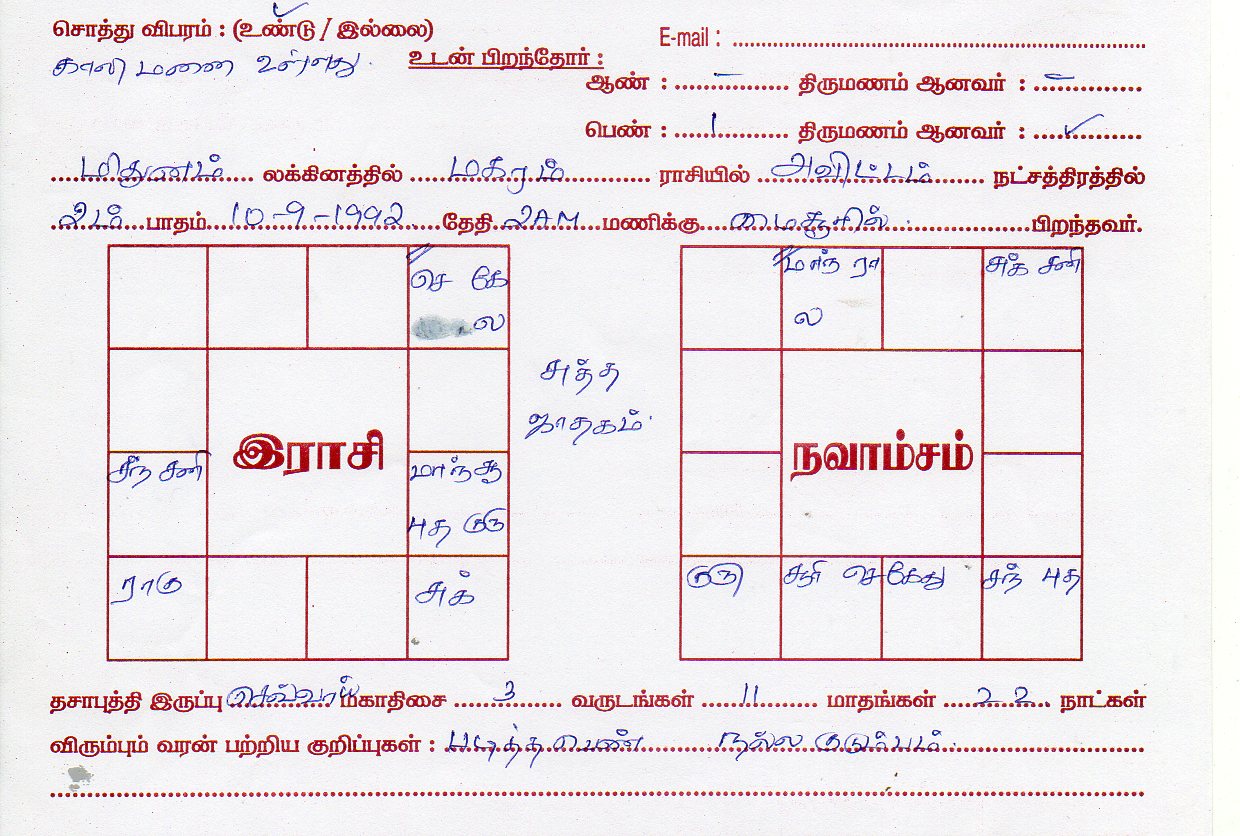 சொத்து விபரம் : (உண்டு / இல்லை)
E-mail : ........................................
காலி மனை உள்ளது.
உடன் பிறந்தோர் :
ஆண் : ..... – ..... திருமணம் ஆனவர் : ..... – .....
பெண் : ..... 1 ..... திருமணம் ஆனவர் : ..... ✓ .....
மிதுனம் லக்கினத்தில் மகரம் ராசியில் அவிட்டம் நட்சத்திரத்தில்
2ம் பாதம் 10-9-1992 தேதி 2AM மணிக்கு மைசூரில் பிறந்தவர்.
செ கே
ல
சுத்த
ஜாதகம்.
இராசி
சந் சனி
மாந் சூ
புத குரு
ராகு
சுக்
மாந் ரா
ல
சுக் சனி
நவாம்சம்
குரு
சூரி செ கேது
சந் புத
தசாபுத்தி இருப்பு செவ்வாய் மகாதிசை 3 வருடங்கள் 11 மாதங்கள் 22 நாட்கள்
விரும்பும் வரன் பற்றிய குறிப்புகள் : படித்த பெண் நல்ல குடும்பம்.